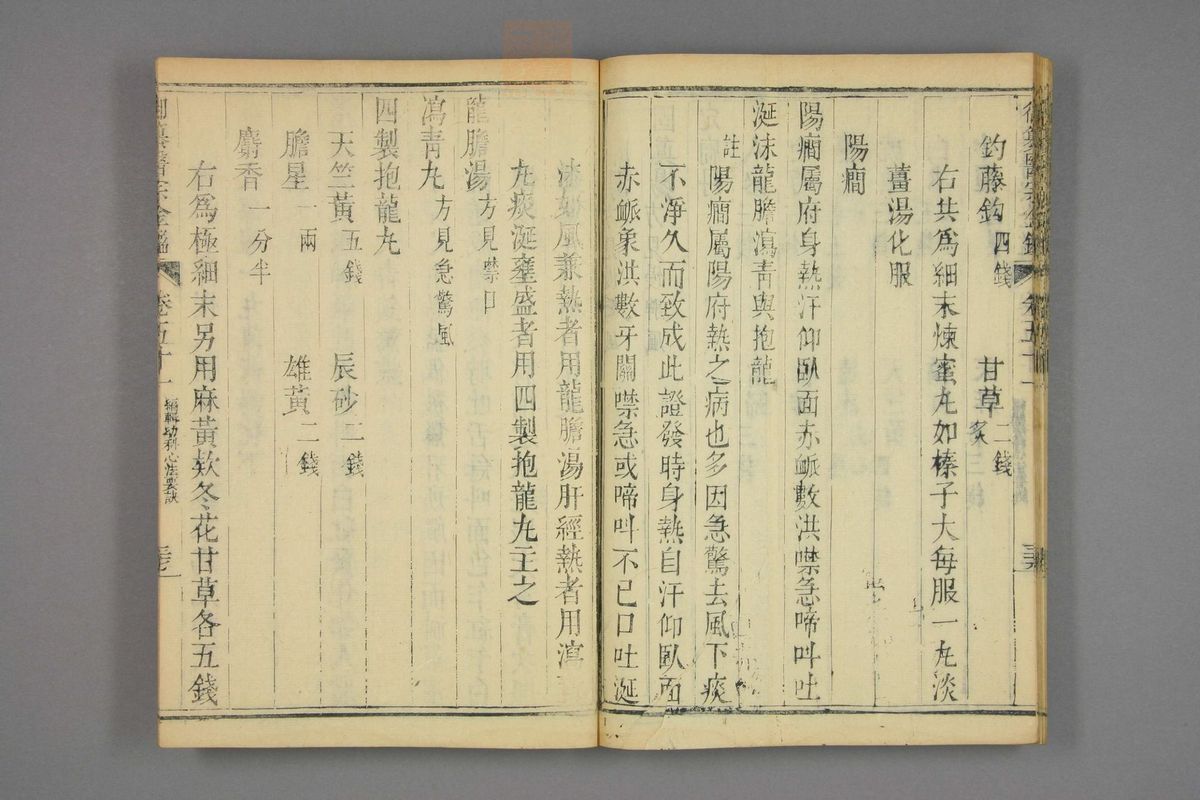 鈎藤鈎四錢 甘草炙二錢
右共為細末煉蜜丸如榛子大每服一丸淡
薑湯化服
陽癎
陽癎屬府身熱汗仰臥面赤衇數洪噤急啼叫吐
涎沫龍膽瀉青與抱龍
註陽癎屬陽府熱之病也多因急驚去風下痰
不淨久而致成此證發時身熱自汗仰臥面
赤衇象洪數牙關噤急或啼叫不已口吐涎
沫如風兼熱者用龍膽湯肝經熱者用瀉
丸痰涎壅盛者用四製抱龍丸主之
龍膽湯方見噤口
瀉青丸方見急驚風
四製抱龍丸
天竺黃五錢 辰砂二錢
膽星一兩 雄黃二錢
麝香一分半
右為極細末另用麻黃欵冬花甘草各五錢
醫宗金鑑 卷五十一 編輯幼科心法要訣